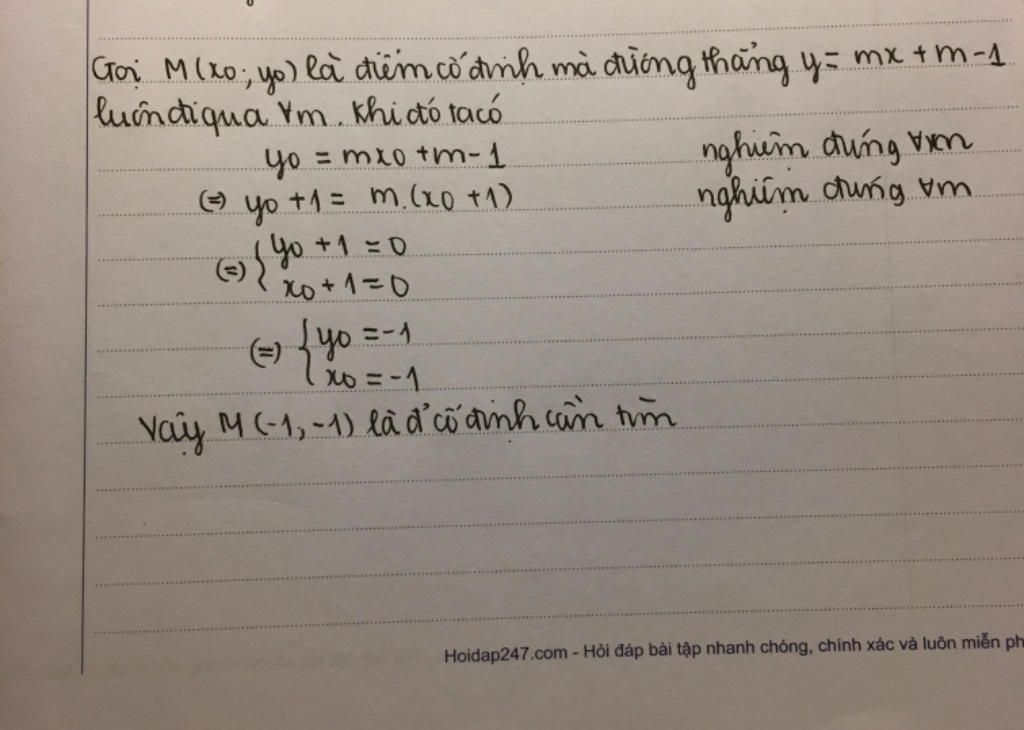 Gọi M(x0; y0) là điểm cố định mà đường thẳng y = mx + m - 1
luôn đi qua ∀m. Khi đó ta có
y0 = mx0 + m - 1 nghiệm đúng ∀m
(=) y0 + 1 = m.(x0 + 1) nghiệm đúng ∀m
(=) { y0 + 1 = 0
x0 + 1 = 0
(=) { y0 = -1
x0 = -1
Vậy M(-1, -1) là đ' cố định cần tìm
Hoidap247.com - Hỏi đáp bài tập nhanh chóng, chính xác và luôn miễn ph